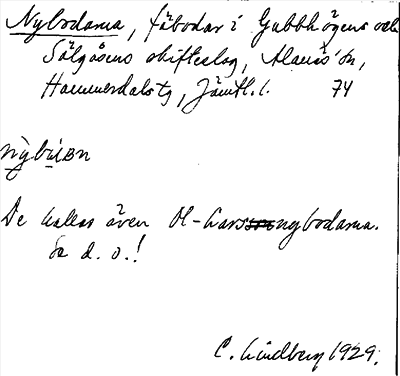 Nybodarna, fäbodar i Gubbhögens och
Sälgåsens skifteslag, Alanäs sn,
Hammerdals tg, Jämtl. l. 74
nỳbúɪʙn
De kallas även Ol-Larsnybodarna.
Se d. o.!
C. Lindberg 1929.